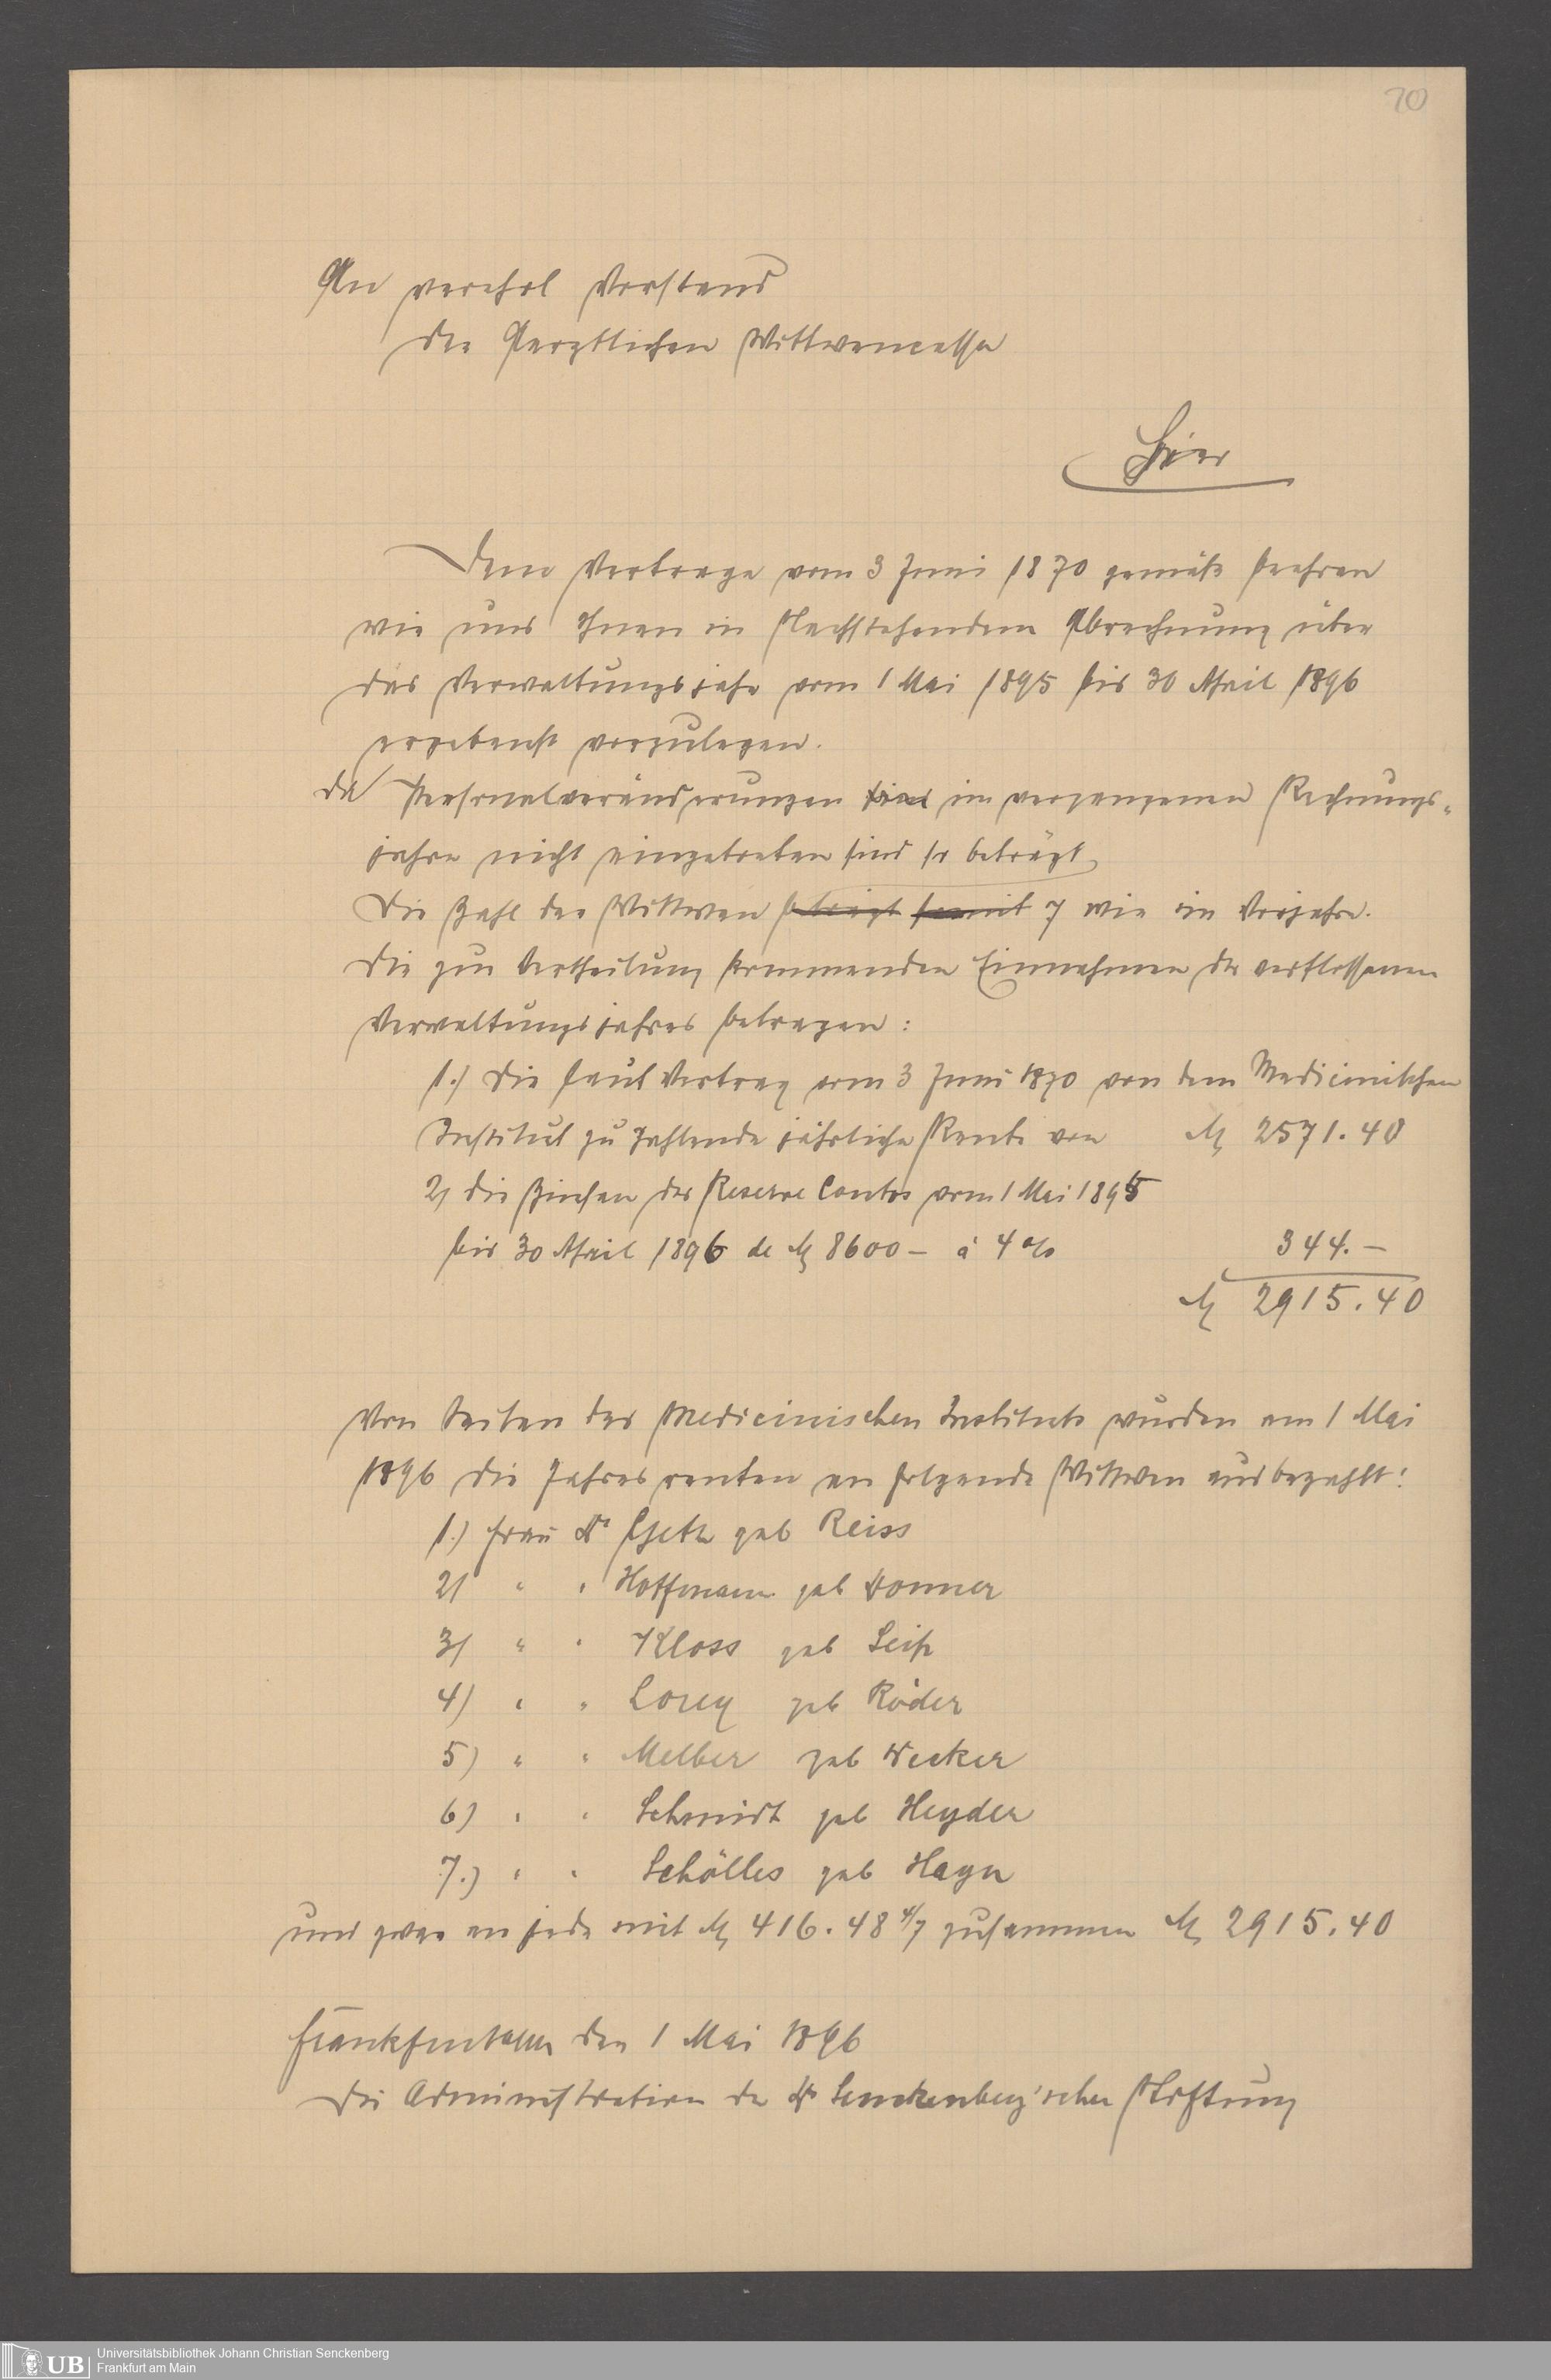 70
An verehrl Vorstand
der Aerztlichen Wittwencasse
Hier
Dem Vertrage vom 3 Juni 1870 gemäß beehren
wir uns Ihnen in Nachstehendem Abrechnung über
das Verwaltungsjahr vom 1 Mai 1895 bis 30 April 1896
ergebenst vorzulegen.
Da Personalveränderungen sind im vergangenen Rechnungs-
jahre nicht eingetreten sind so beträgt
Die Zahl der Wittwen beträgt somit 7 wie im Vorjahre.
Die zur Vertheilung kommenden Einnahmen des verflossenen
Verwaltungsjahres betragen:
1.) Die laut Vertrag vom 3 Juni 1870 von dem Medicinischen
Institut zu zahlende jährliche Rente von M 2571.40
2) die Zinsen des Reserve Contos vom 1 Mai 1895
bis 30 April 1896 de M 8600 – à 4% 344.–
M 2915.40
Von Seiten des Medicinischen Instituts wurden am 1 Mai
1896 die Jahresrenten an folgende Wittwen ausbezahlt:
1.) Frau Dr geb Reiss
2) " " Hoffmann geb Donner
3) " " Kloss geb Seip
4) " " Lorey geb Röder
5) " " Melber geb Decker
6) " " Schmidt geb Heyder
7.) " " Schölles geb Hayn
und zwar an jede mit M 416.48 4/7 zusammen M 2915.40
Frankfurt a/M den 1 Mai 1896
Die Administration der Dr Senckenberg'schen Stiftung
Universitätsbibliothek Johann Christian Senckenberg
UB
Frankfurt am Main